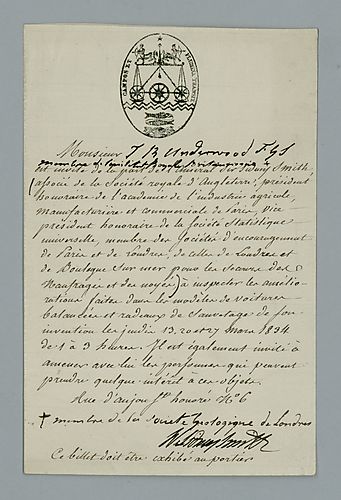 Monsieur T B Underwood F.G.S
membre de
est invité de la part de l'Amiral Sir Sidney Smith,
(associé de la Société royale d'Angleterre, président
honoraire de l'académie de l'industrie agricole,
manufacturière et commerciale de Paris, vice
président honoraire de la Société Statistique
universelle, membre des Sociétés d'encouragement
de Paris et de Londres, de celle de Londres et
de Boulogne sur mer pour les secours des
Naufragés et des noyés) à inspecter les amélio-
rations faites dans les modèles de voitures
balancées et radeaux de Sauvetage de son
invention les jeudis 13, 20 et 27 Mars 1834
de 1 à 3 heures. Il est également invité à
amener avec lui les personnes qui peuvent
prendre quelque intérêt à ces objets.
Rue d'anjou St. honoré No. 6
+ membre de la societé Geologique de Londres
W. Sidney Smith
Ce billet doit être exhibé au portier